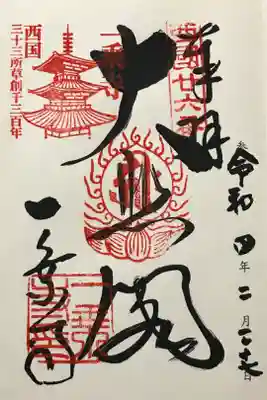 奉拝
西国廿六番
令和四年二月二十七日
大悲閣
一乗寺
西国
三十三所草創千三百年